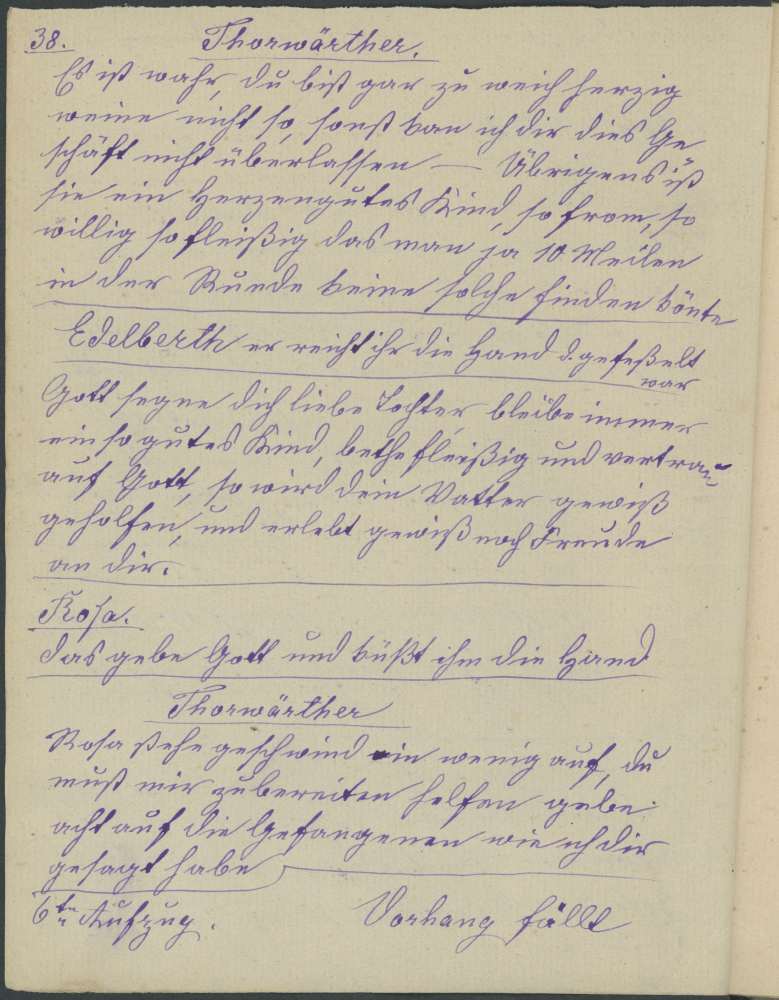 38. Thorwärther.
Es ist wahr, du bist gar zu weich herzig
weine nicht so, sonst kan ich dir dies Ge
schäft nicht überlassen — Übrigens ist
sie ein Herzengutes Kind, so from, so
willig so fleißig das man ja 10 Meilen
in der Runde keine solche finden könte
Edelberth er reicht ihr die Hand d. gefeßelt
war
Gott segne dich liebe Tochter, bleibe immer
ein so gutes Kind, bethe fleißig und vertrau
auf Gott, so wird dein Vatter gewiß
geholfen, und erlebt gewiß noch Freude
an dir.
Rosa.
das gebe Gott und küßt ihm die Hand
Thorwärther
Rosa stehe geschwind ein wenig auf, du
mußt mir zubereiten helfen gebe
acht auf die Gefangenen wie ich dir
gesagt habe
6te Aufzug. Vorhang fällt